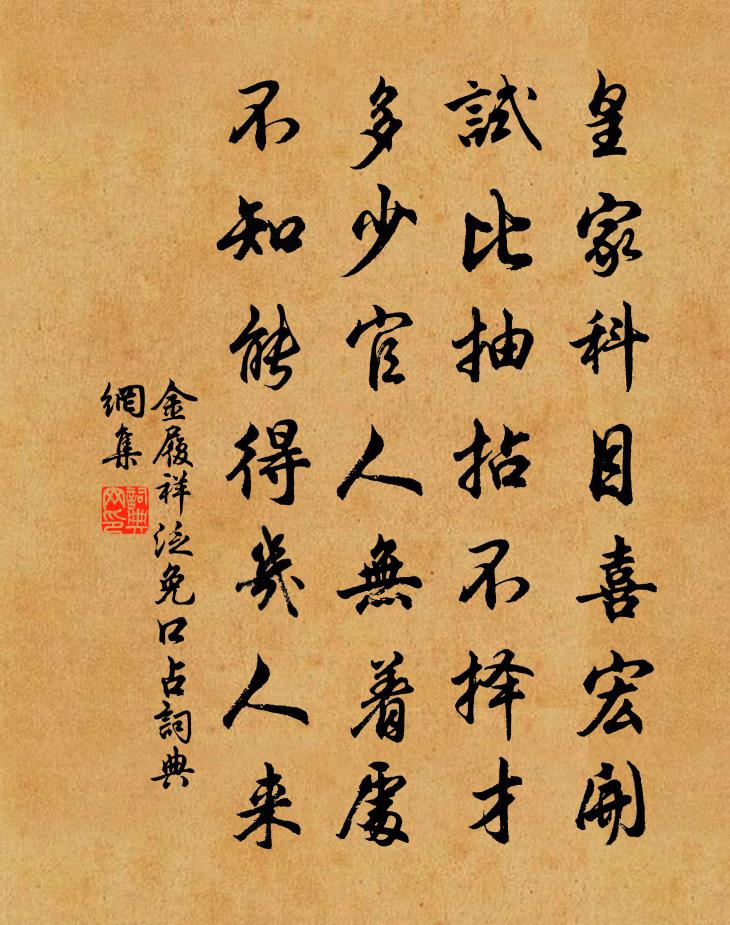 皇家科目喜宏開
試比抽拈不择才
多少官人無着處
不知能得幾人来
金履祥泛免口占詞典
網集
詞典
网印